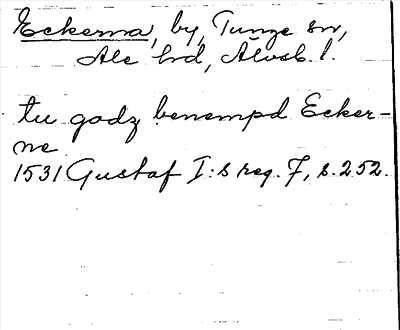 Eckerna, by, Tunge sn,
Ale hrd, Älvsb. l.
tu godz benempd Ecker-
ne
1531 Gustaf I:s reg. 7, s. 252.